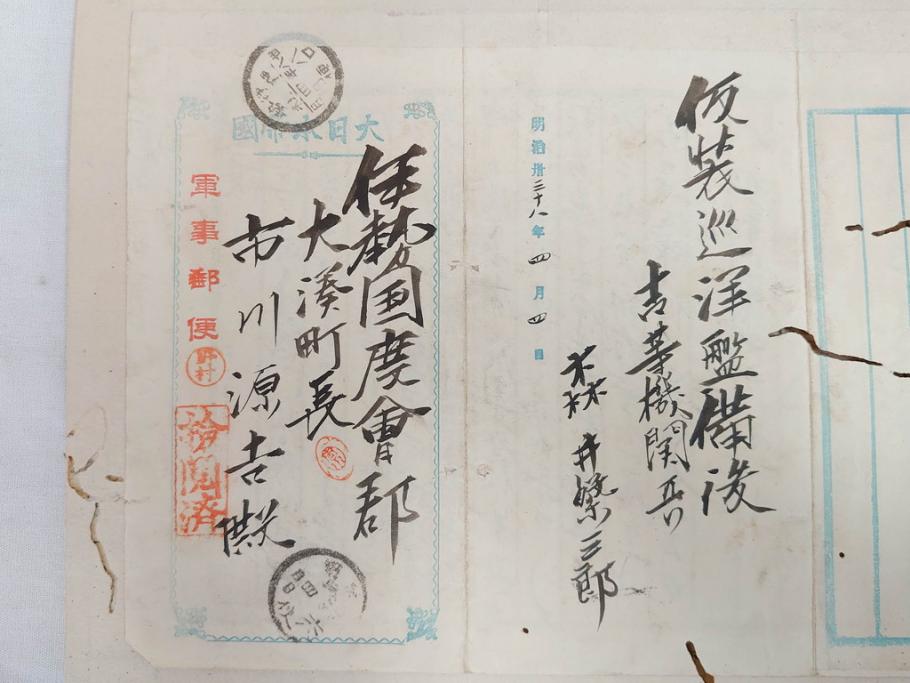 仮装巡洋艦備後
吉等機関兵
森井榮三郎
明治卅三十八年四月四日
大日本帝國
伊勢国度會郡
大湊町長
市川源吉殿
軍事郵便
野村
検閲済